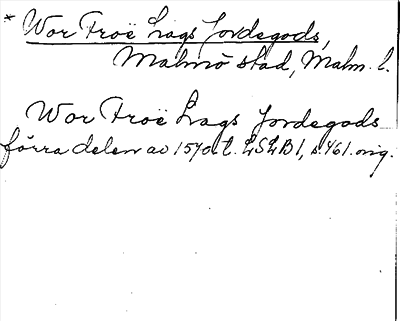 * Wor Froë Lags Jordegods,
Malmö stad, Malm. l.
Wor Froë Lags Jordegods
förra delen av 1570 t. LSLB1, s. 461. orig.